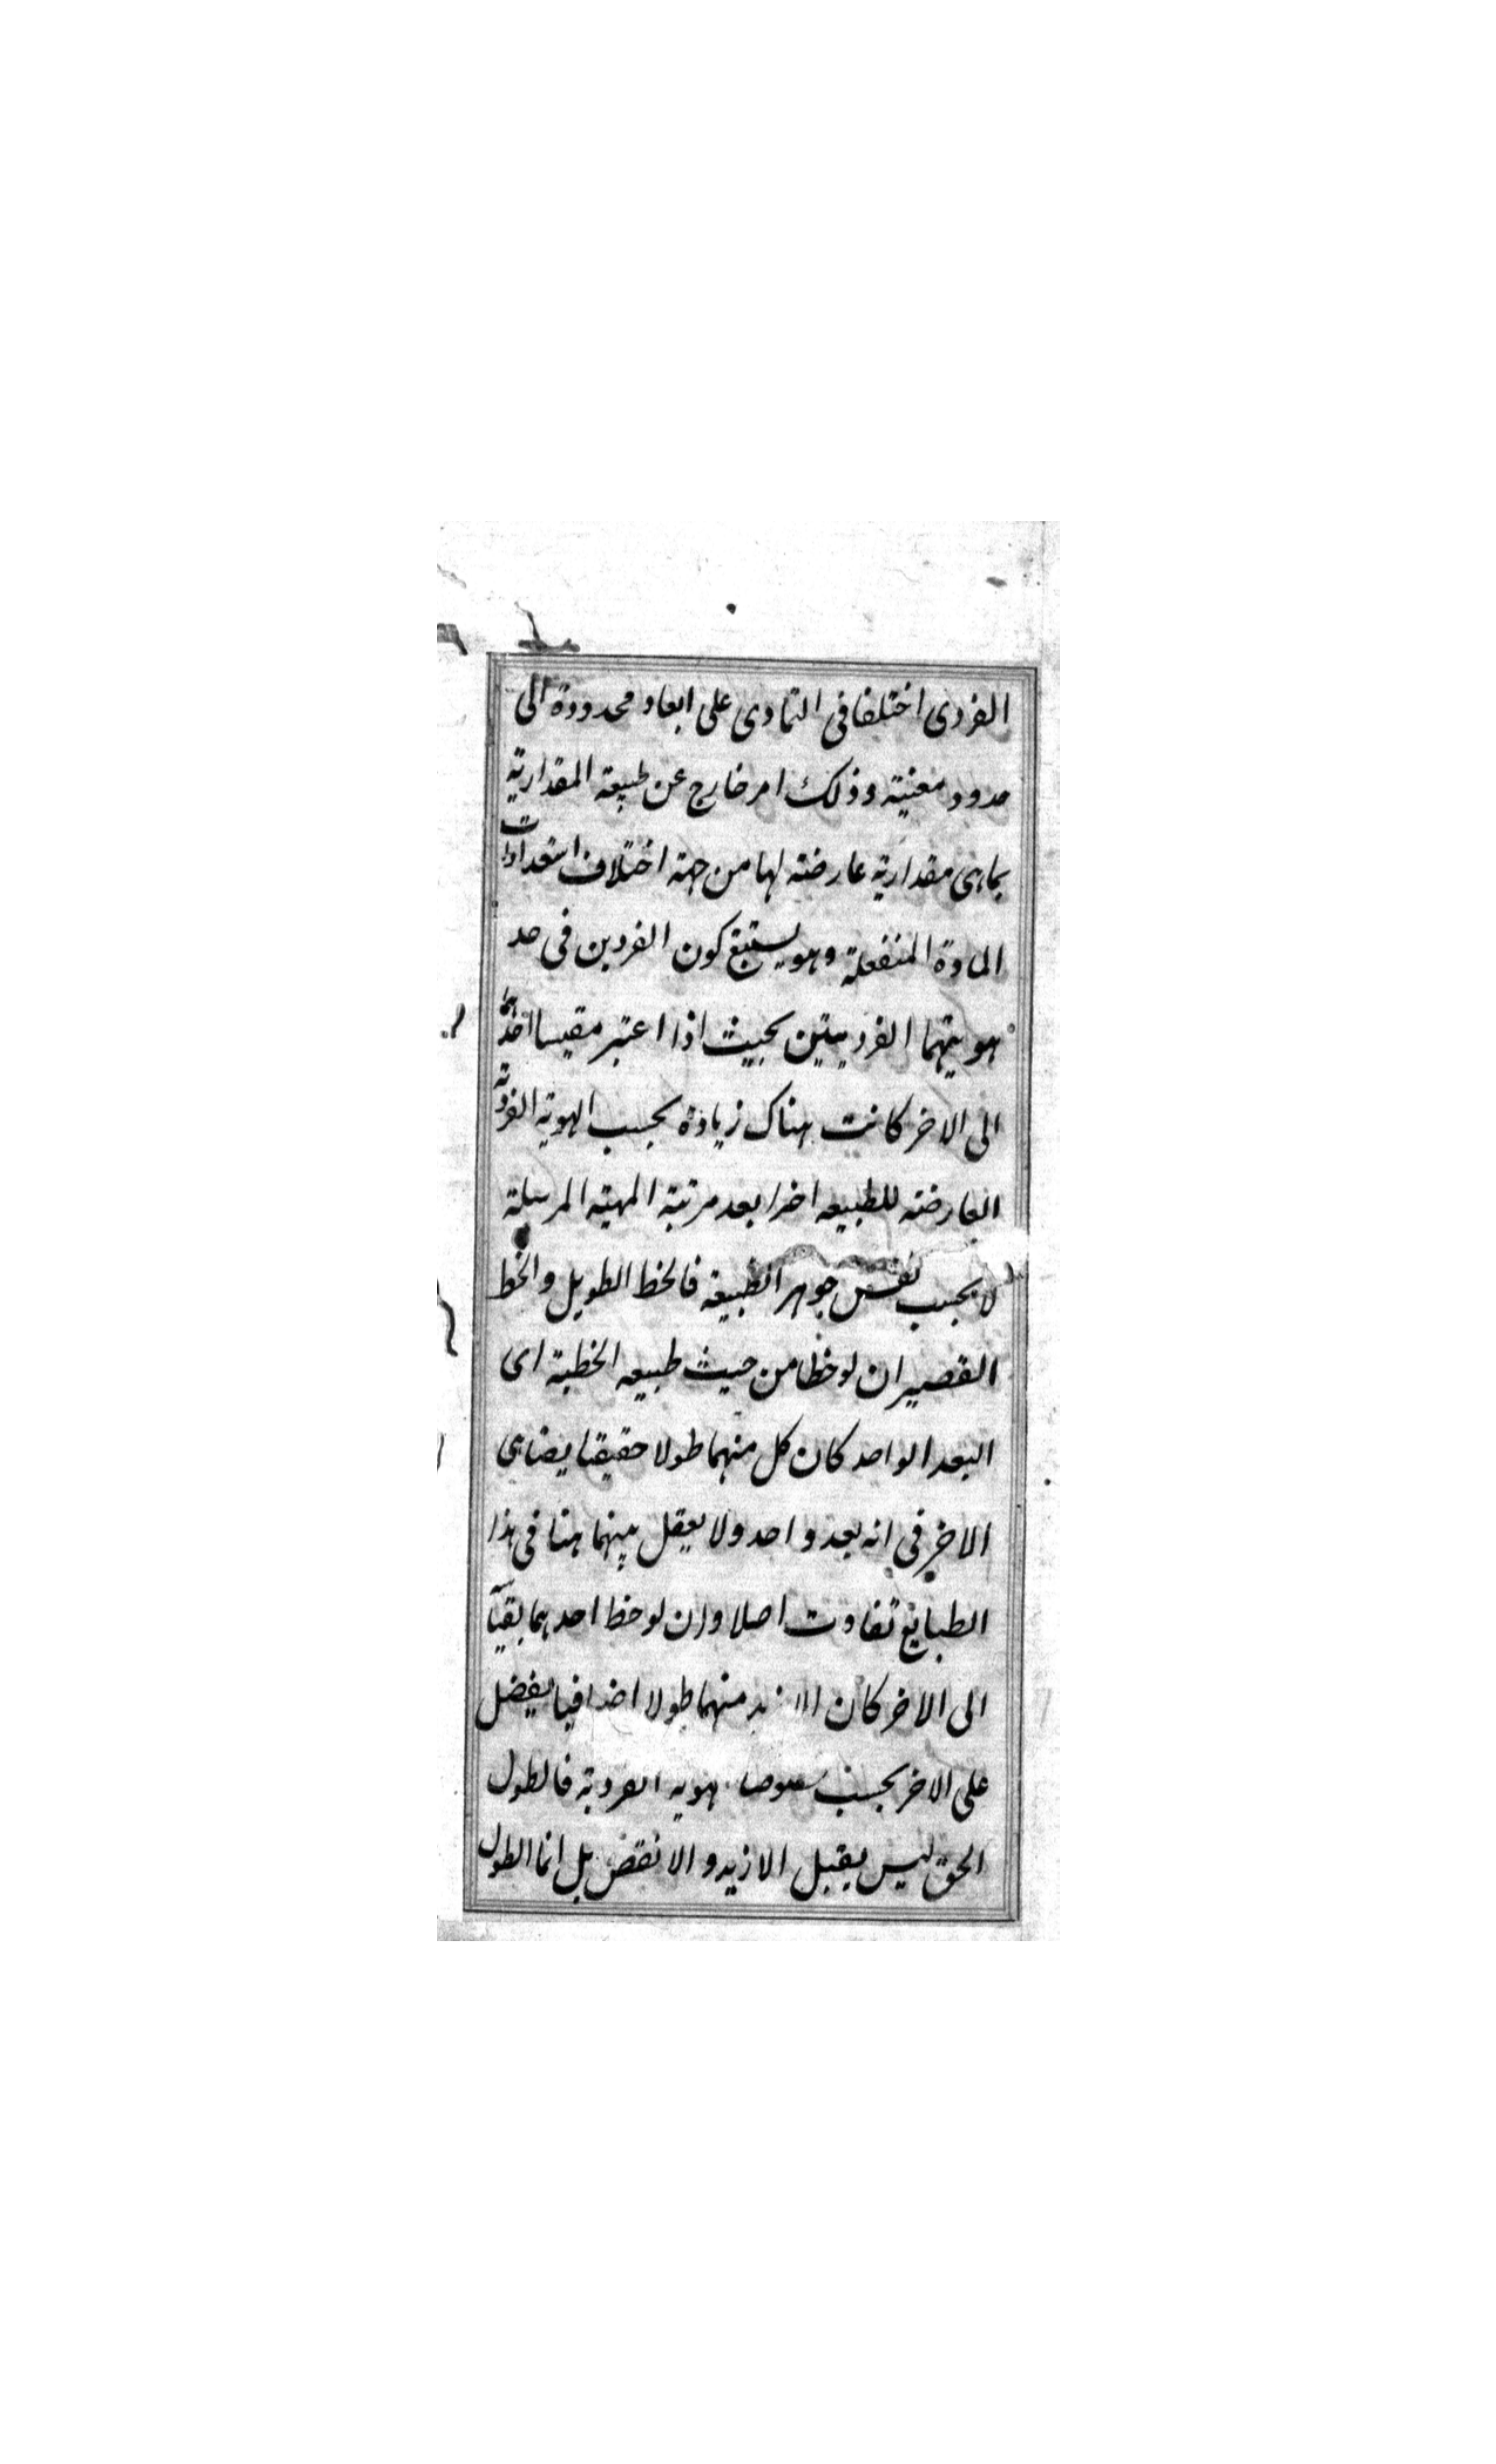 الفردى اختلفا فى التمادى على ابعاد محدودة الى
حدود معينة وذلك امر خارج عن طبيعة المقدارية
بماهى مقدارية عارضته لها من جهة اختلاف استعدادات
المادة المنفعلة وهو يستتبع كون الفردين فى حد
هويتهما الفرديتين بحيث اذا اعتبر مقيسا احدهما
الى الاخر كانت هناك زيادة بحسب الهوية الفردية
العارضته للطبيعه اخرا بعد مرتبة المهية المرسلة
لا بحسب نفس جوهر الطبيعة فالخط الطويل والخط
القصير ان لوحظا من حيث طبيعه الخطية اى
البعد الواحد كان كل منهما طولا حقيقيا يضاهى
الاخر فى انه بعد واحد ولا يعقل بينهما هنا فى هذا
الطبايع تفاوت اصلا وان لوحظ احدهما بقياسه
الى الاخر كان منهما طولا اضافيا يفضل
على الاخر بحسب هويه الفردية فالطول
الحق ليس يقبل الازيد والانقض بل انما الطول